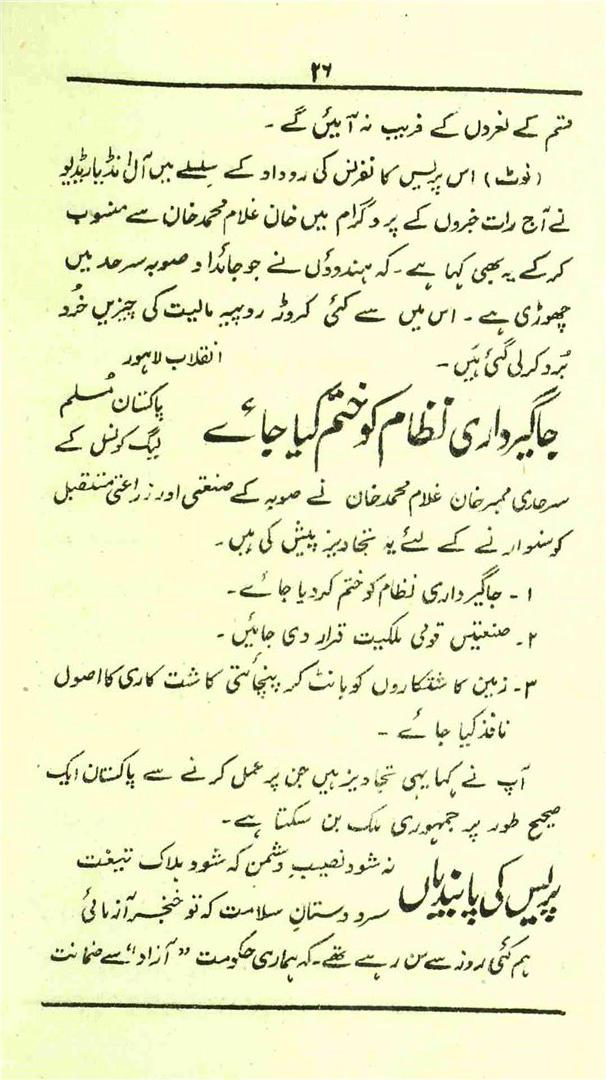 ۲۶
قسم کے نعروں کے فریب نہ آئیں گے ۔
(نوٹ) اس پریس کانفرنس کی روداد کے سلسلے میں آل انڈیا ریڈیو
نے آج رات خبروں کے پروگرام میں خان غلام محمد خان سے منسوب
کر کے یہ بھی کہا ہے ۔ کہ ہندوؤں نے جو جائداد صوبہ سرحد میں
چھوڑی ہے ۔ اس میں سے کئی کروڑ روپیہ مالیت کی چیزیں خُرد
بُرد کر لی گئی ہیں ۔
انقلاب لاہور
جاگیرداری نظام کو ختم کیا جائے
پاکستان مُسلم
لیگ کونسل کے
سرحدی ممبر خان غلام محمد خان نے صوبہ کے صنعتی اور زراعتی مستقبل
کو سنوارنے کے لئے یہ تجاویز پیش کی ہیں ۔
۱ ۔ جاگیرداری نظام کو ختم کر دیا جائے ۔
۲ ۔ صنعتیں قومی ملکیت قرار دی جائیں ۔
۳ ۔ زمین کاشتکاروں کو بانٹ کر پنچائتی کاشت کاری کا اصول
نافذ کیا جائے ۔
آپ نے کہا یہی تجاویز ہیں جن پر عمل کرنے سے پاکستان ایک
صحیح طور پر جمہوری ملک بن سکتا ہے ۔
پریس کی پابندیاں
نہ شود نصیبِ دشمن کہ شود ہلاک تیغت
سرِ دوستان سلامت کہ تو خنجر آزمائی
ہم کئی روز سے سن رہے تھے ۔ کہ ہماری حکومت "آزاد" سے ضمانت